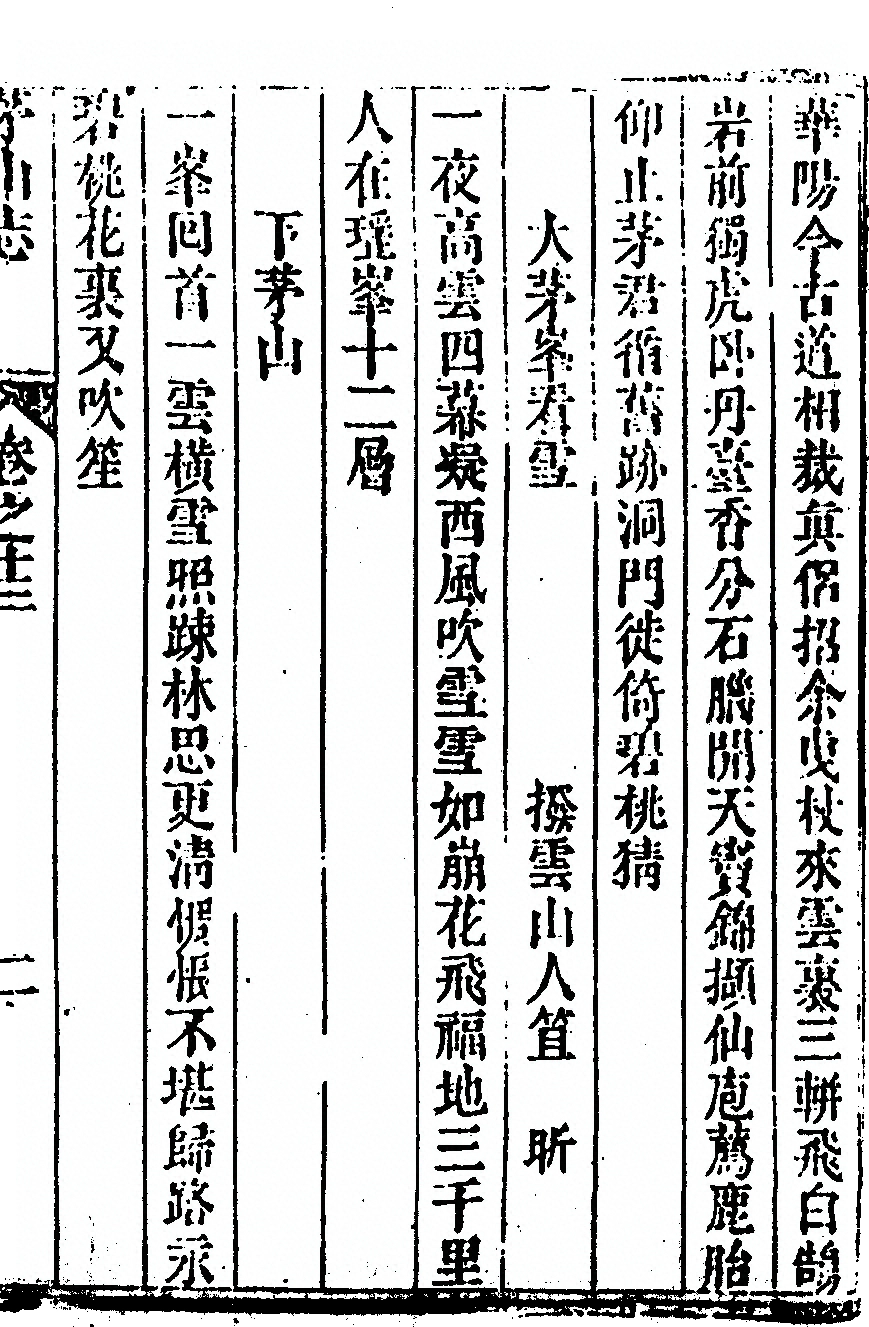 華陽今古道相裁真侶招余曳杖來雲裹三軿飛白鵠
岩前獨虎卧丹臺香分石臘開天寳錦擷仙庖薦鹿胎
仰止茅君循舊跡洞門徙倚碧桃猜
大茅峯看雪　撥雲山人笪　昕
一夜高雲四幕凝西風吹雪雪如崩花飛福地三千里
人在瑶峯十二層
下茅山
一峯回首一雲橫雪照踈林思更淸惆悵不堪歸路永
碧桃花裹又吹笙
茅山志　卷之十三　二